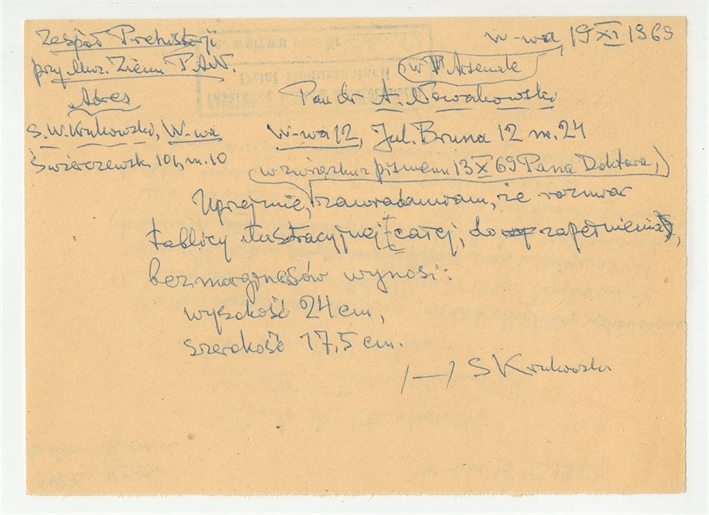 Zespół Prehistorji
W-wa, 19 XI 1969
przy Muz. Ziemi PAN.
(w P. Arsenale
Adres
Pan dr A. Nowakowski
S. W. Krukowski, W-wa
W-wa 12, Jul. Bruna 12 m. 24
Świerczewsk. 101, m. 10
(w związku z pismem 13 X 69 Pana Doktora,)
Uprzejmie zawiadamiam, że rozmiar
tablicy ilustracyjnej całej, do zapełnienia,
bez marginesów wynosi:
wysokość 24 cm,
szerokość 17,5 cm.
/—/ S Krukowski